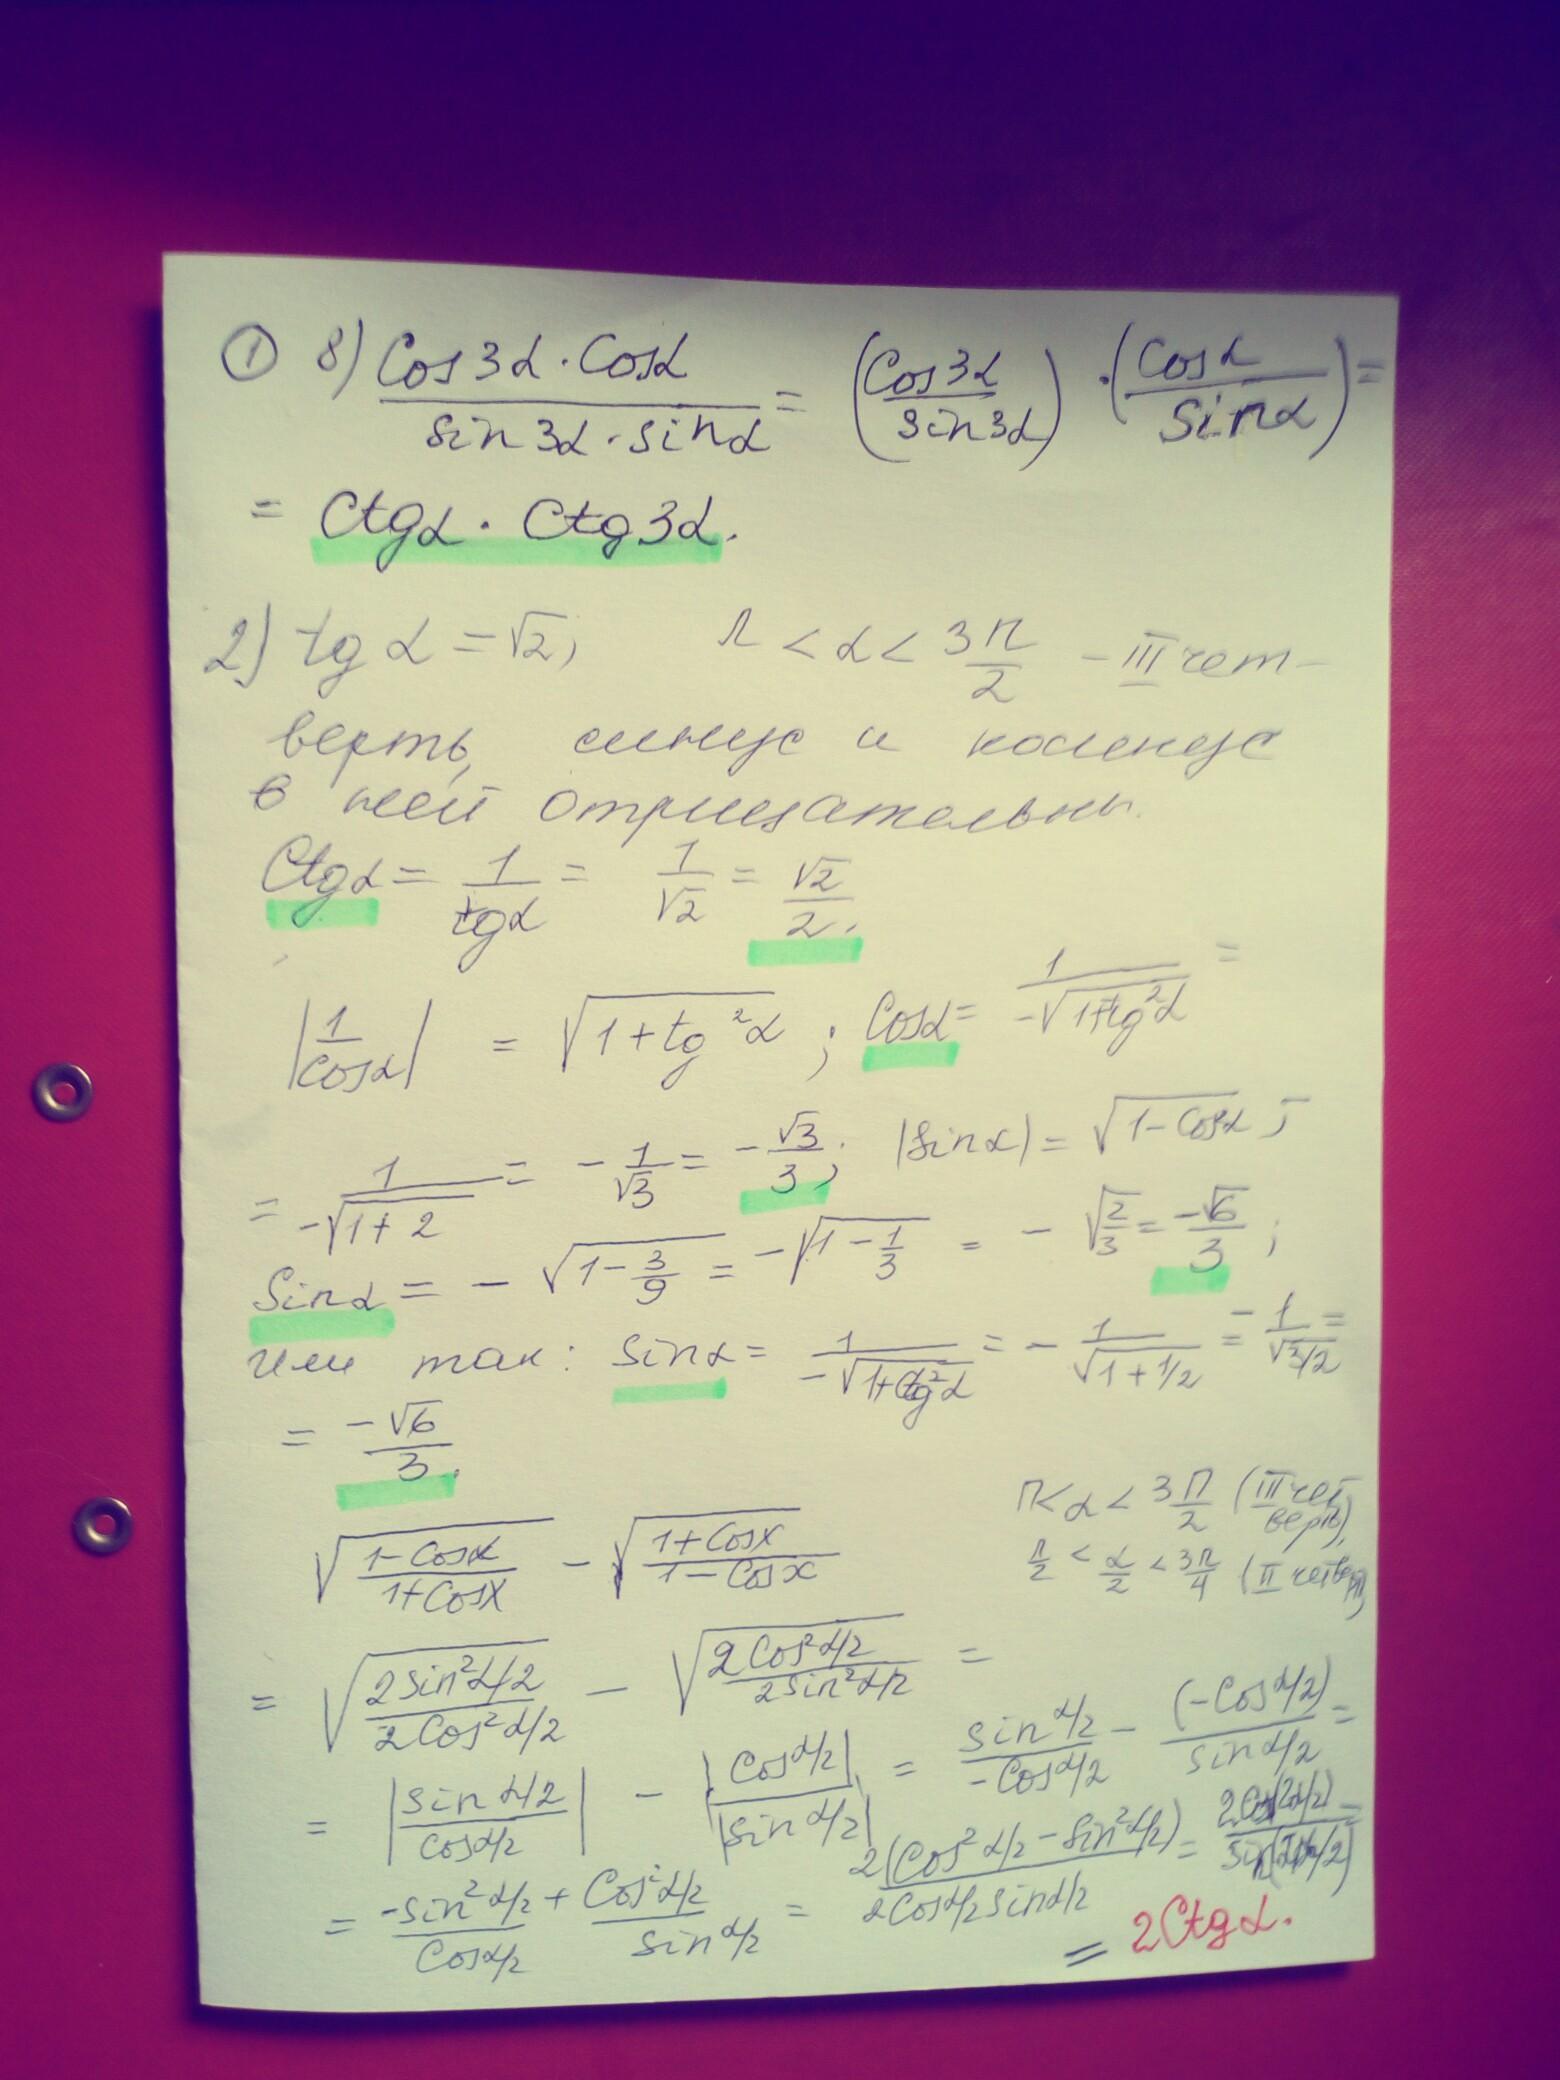 ① 8) Cos3α · Cosα / sin3α · sinα = (Cos3α / sin3α) · (Cosα / Sinα) =
= Ctgα · Ctg3α.
2) tgα = √2, π < α < 3π/2 – III чет-
верть, синус и косинус
в ней отрицательны.
Ctgα = 1/tgα = 1/√2 = √2/2.
|1/cosα| = √(1+tg²α) ; Cosα = 1/-√(1+tg²α) =
= 1/-√(1+2) = -1/√3 = -√3/3; |sinα| = √(1-Cos²α) ;
Sinα = -√(1-3/9) = -√(1-1/3) = -√(2/3) = -√6/3 ;
или так: Sinα = 1/-√(1+Ctg²α) = -1/√(1+1/2) = -1/√(3/2) =
= -√6/3.
√((1-Cosα)/(1+Cosx)) - √((1+Cosx)/(1-Cosx))
π<α<3π/2 (III чет
верть),
π/2 < α/2 < 3π/4 (II четверть)
= √(2sin²α/2 / 2Cos²α/2) - √(2Cos²α/2 / 2sin²α/2) =
= |sinα/2 / cosα/2| - |Cosα/2| / |sinα/2| = sinα/2 / -Cosα/2 - (-Cosα/2) / sinα/2 =
= -sin²α/2 / Cosα/2 + Cos²α/2 / sinα/2 = 2(Cos²α/2 - sin²α/2) / 2Cosα/2 sinα/2 = 2Cos(2α/2) / sin(2α/2) =
= 2Ctgα.